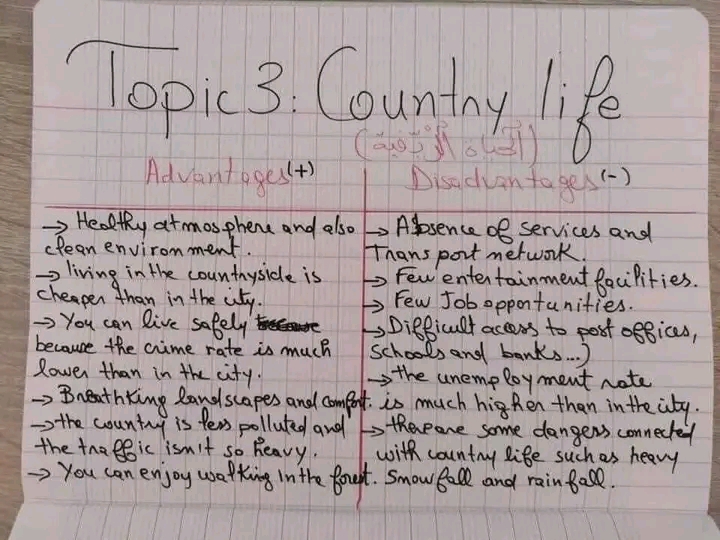 Topic 3: Country life
(الحياة الريفية)
Advantages (+)
Disadvantages (-)
→ Healthy atmosphere and also
clean environment.
→ living in the countryside is
cheaper than in the city.
→ You can live safely
because the crime rate is much
lower than in the city.
→ Breathking landscapes and comfort.
→ the country is less polluted and
the traffic isn't so heavy.
→ You can enjoy walking in the forest.
→ Absence of services and
Transport network.
→ Few entertainment facilities.
→ Few Job opportunities.
→ Difficult access to post offices,
schools and banks...)
→ the unemployment rate
is much higher than in the city.
→ there are some dangers connected
with country life such as heavy
snowfall and rainfall.